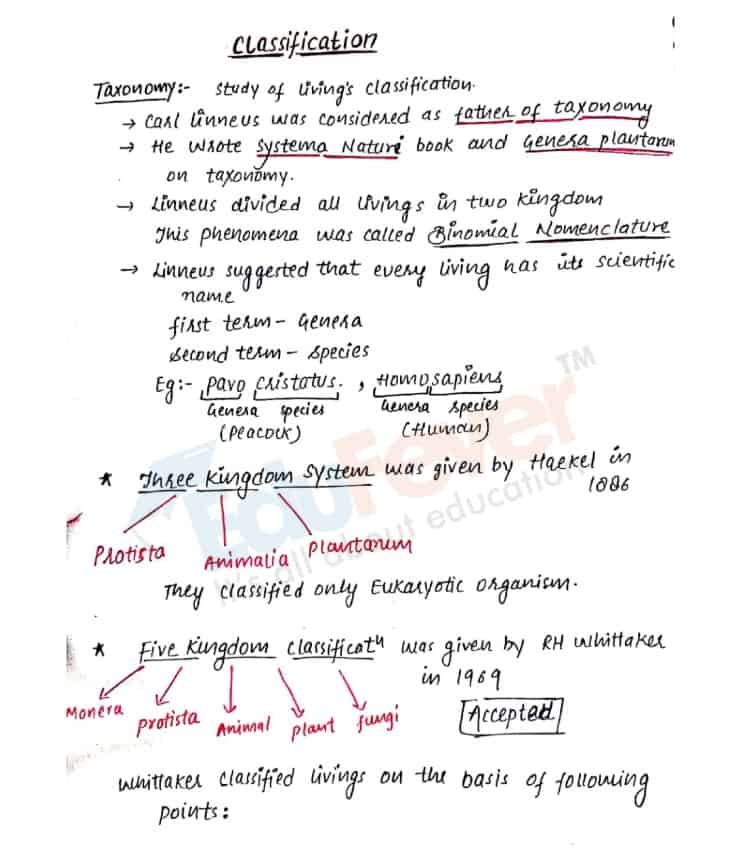 Classification
Taxonomy:- Study of living's classification.
→ Carl Linneus was considered as father of taxonomy
→ He wrote Systema Nature book and Genera plantarum
on taxonomy.
→ Linneus divided all livings in two kingdom
This phenomena was called Binomial Nomenclature
→ Linneus suggested that every living has its scientific
name
first term - Genera
Second term - Species
Eg:- Pavo cristatus. , Homosapiens
Genera species Genera species
(Peacock) (Human)
* Three kingdom system was given by Haekel in
1886
Protista Animalia Plantarum
They classified only Eukaryotic organism.
* Five kingdom classificatn was given by RH Whittaker
in 1969
Monera Protista Animal plant fungi Accepted
Whittaker classified livings on the basis of following
points:
EduFever™
It's all about education